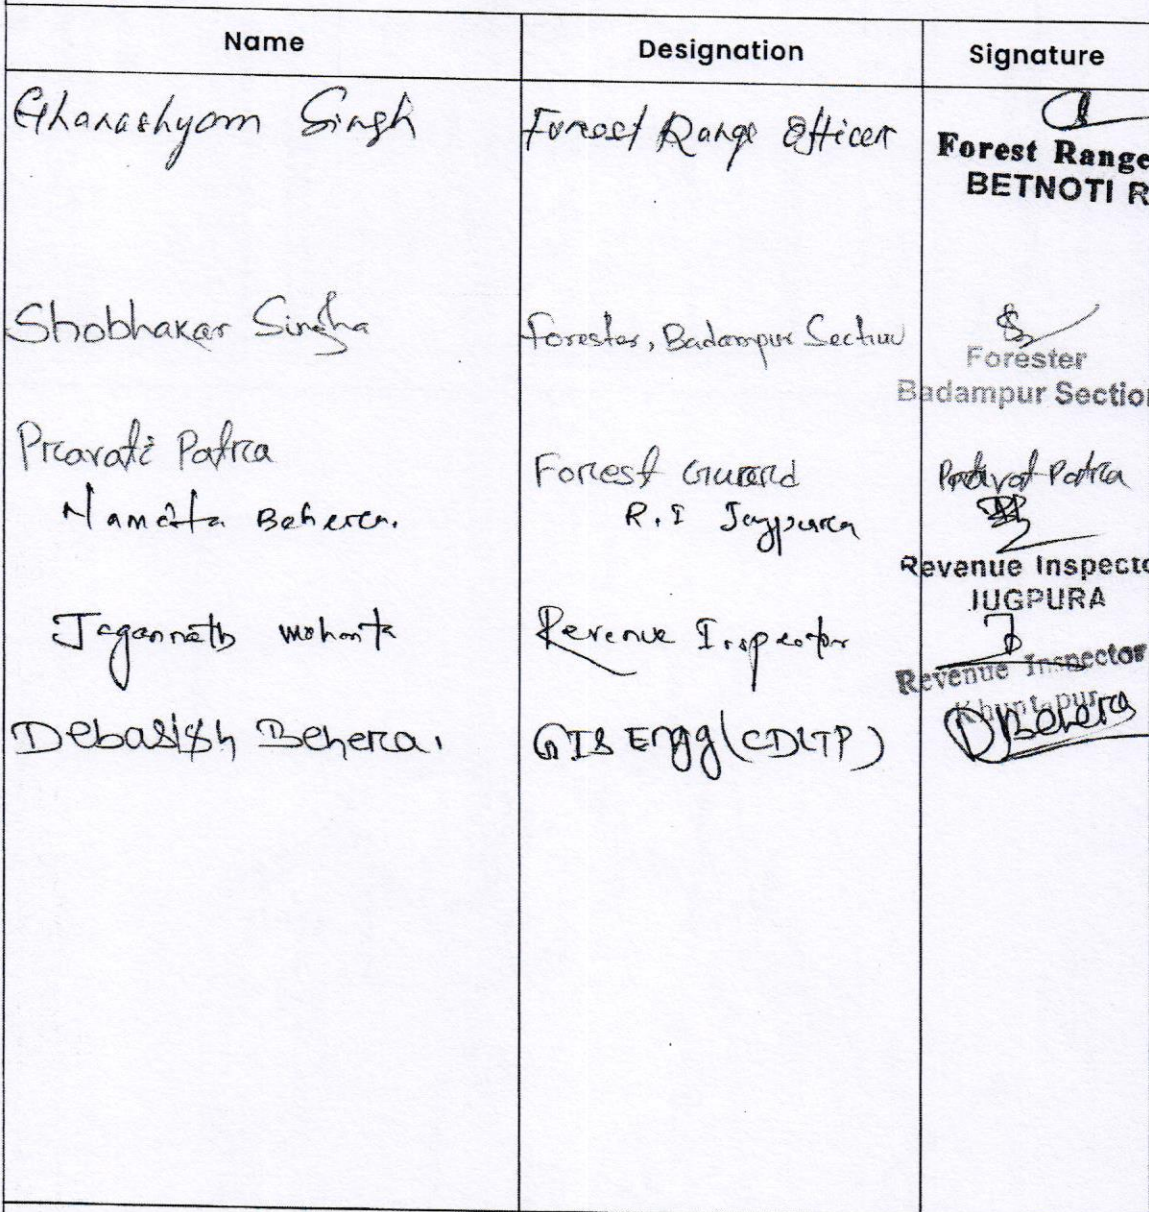 Name Designation Signature
Ghanashyam Singh Forest Range Officer
Forest Range
BETNOTI R
Shobhakar Singha Forester, Badampur Section
Forester
Badampur Section
Pravati Patra Forest Guard Patra
Namita Behera. R.I Jugpura
Revenue Inspecto
JUGPURA
Jagannath Mohanta Revenue Inspector
Revenue Inspector
Khuntapur
Debasish Behera. GIS Engg (CDLTP) DBehera